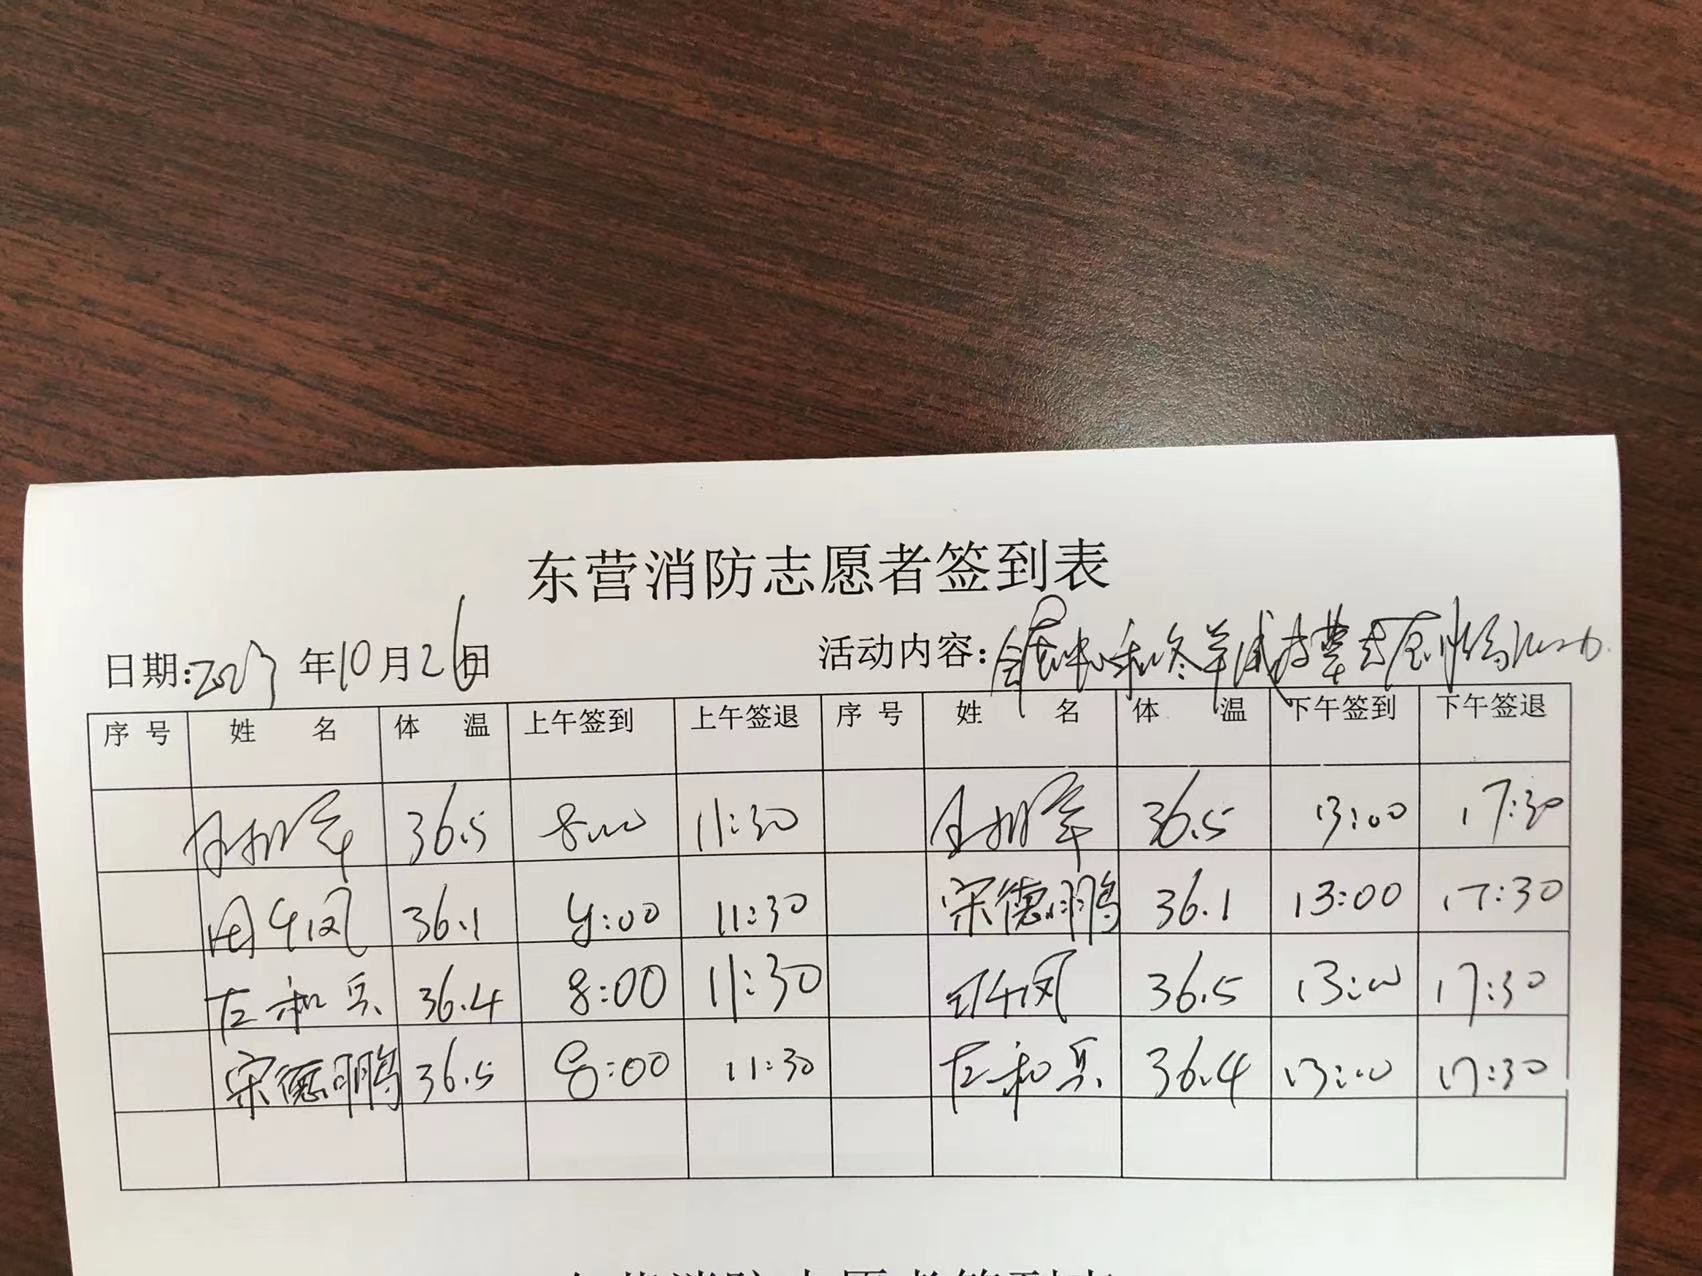 东营消防志愿者签到表
日期:2023年10月26日 活动内容:
序号 姓名 体温 上午签到 上午签退 序号 姓名 体温 下午签到 下午签退
36.5 8:00 11:30 36.5 13:00 17:30
36.1 8:00 11:30 宋德鹏 36.1 13:00 17:30
左和兵 36.4 8:00 11:30 36.5 13:00 17:30
宋德鹏 36.5 8:00 11:30 左和兵 36.4 13:00 17:30
东营消防志愿者签到表